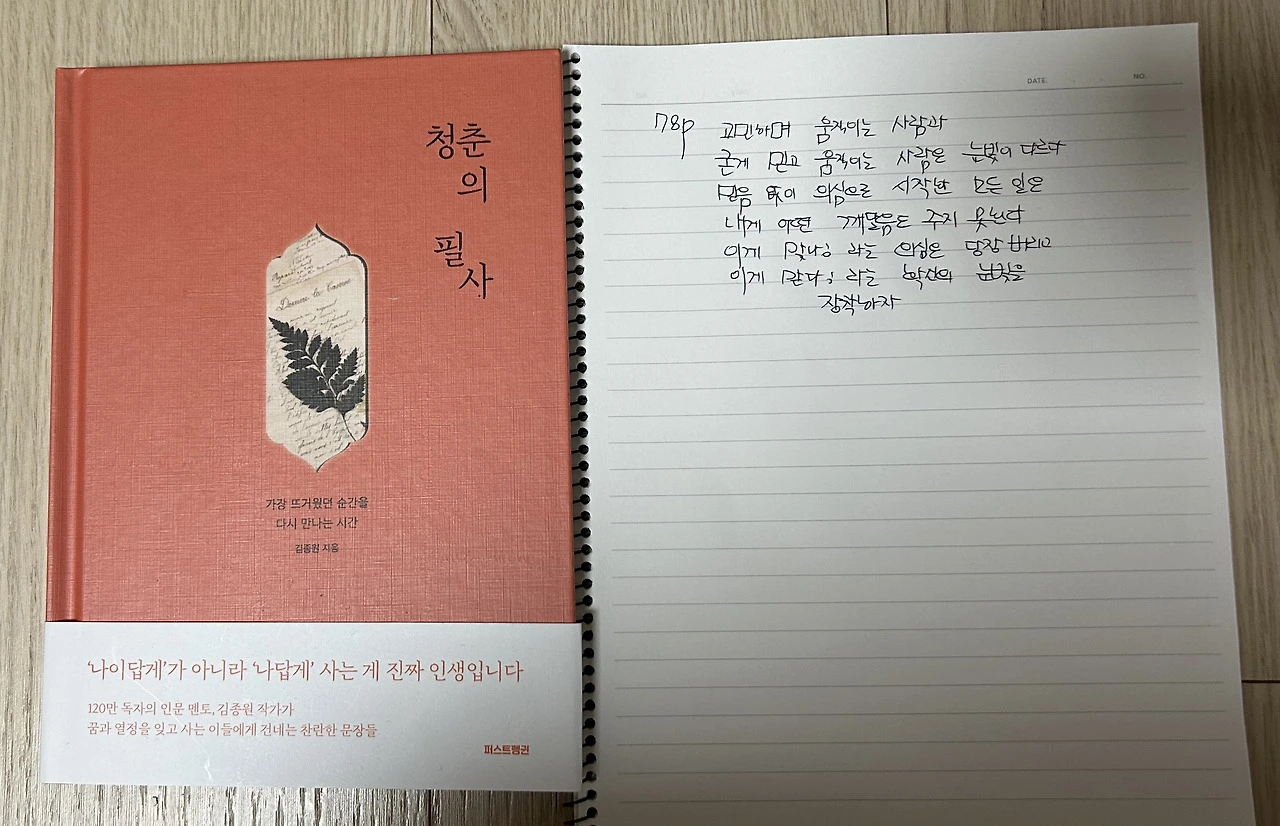 청춘
의
필
사
가장 뜨거웠던 순간을
다시 만나는 시간
김종원 지음
'나이답게'가 아니라 '나답게' 사는 게 진짜 인생입니다
120만 독자의 인문 멘토, 김종원 작가가
꿈과 열정을 잊고 사는 이들에게 건네는 찬란한 문장들
퍼스트펭귄
DATE. NO.
78p 고민하며 움직이는 사람과
굳게 믿고 움직이는 사람은 눈빛이 다르다
믿음 없이 의심으로 시작한 모든 일은
내게 어떤 깨달음도 주지 못한다
이게 맞나? 라는 의심은 당장 버리고
이게 맞다! 라는 확신의 눈빛을
장착하자